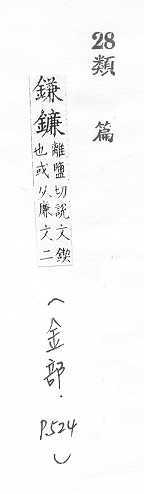 28
類篇
鎌鐮離鹽切說文鍥
也或从廉文二
（金部．P.524）